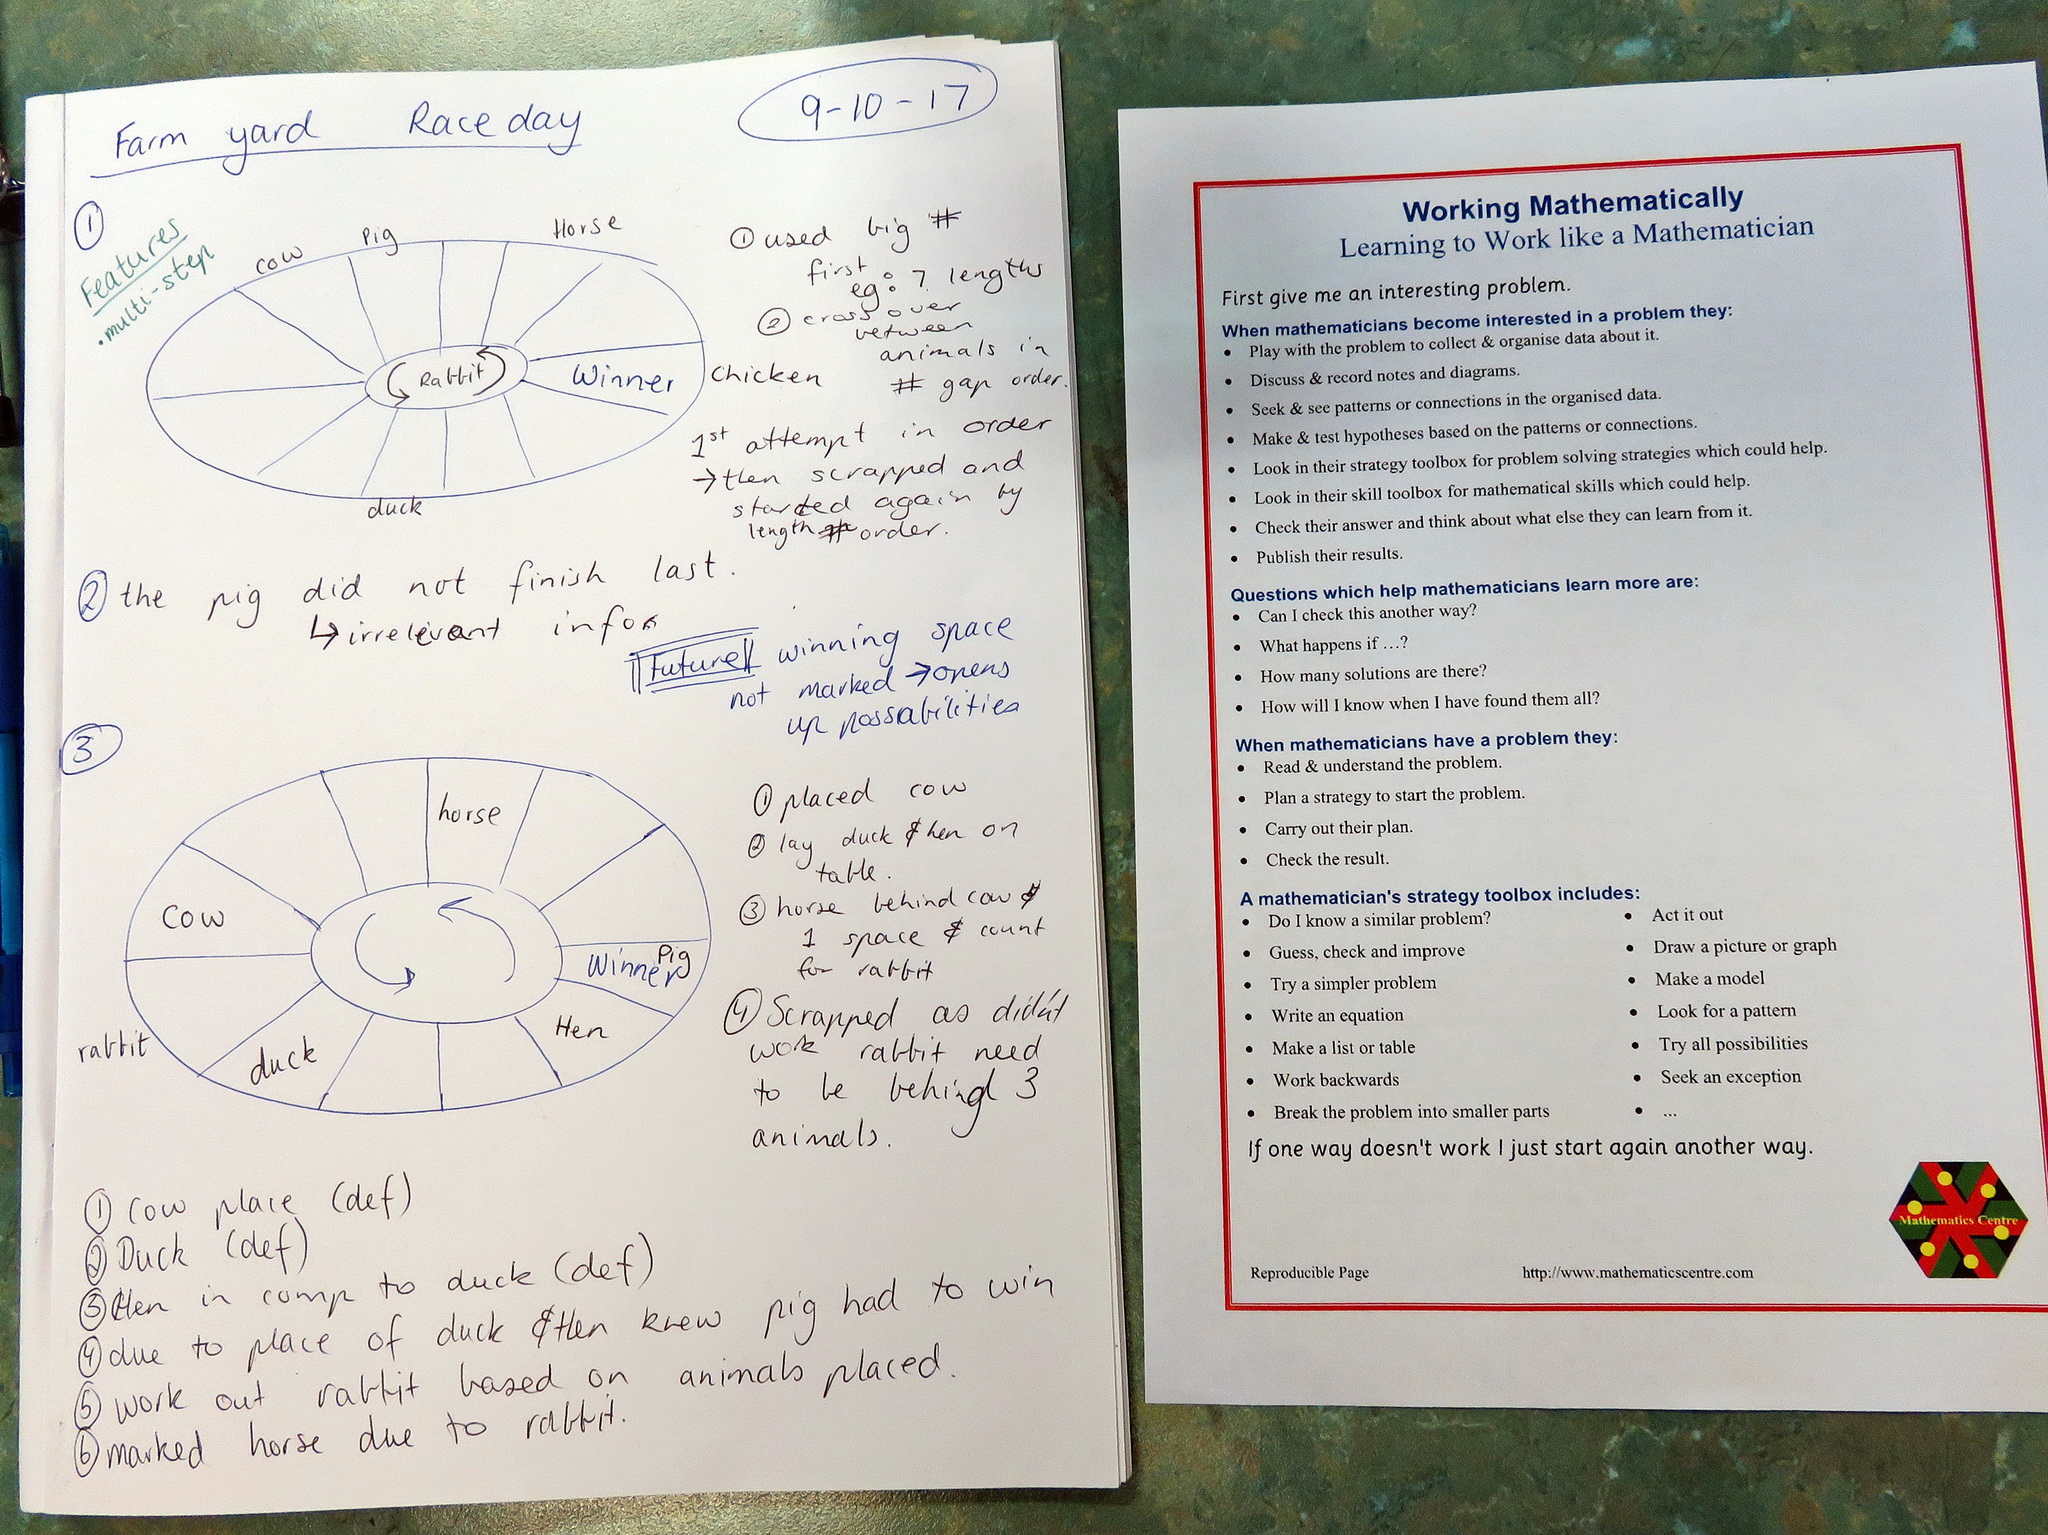 Farm yard Raceday
9-10-17
①
Features
.multi-step
cow
Pig
Horse
Rabbit
Winner
Chicken
duck
① used big #
first
eg: 7 lengths
② cross over
between
animals in
# gap order.
1st attempt in order
→ then scrapped and
started again by
length # order.
② the pig did not finish last.
↳ irrelevant info
Future winning space
not marked → opens
up possabilities
③
horse
Cow
Pig
Winner
Hen
duck
rabbit
① placed cow
② lay duck & hen on
table.
③ horse behind cow
1 space & count
for rabbit
④ Scrapped as didn't
work rabbit need
to be behind 3
animals.
① Cow place (def)
② Duck (def)
③ Hen in comp to duck (def)
④ due to place of duck & Hen knew pig had to win
⑤ work out rabbit based on animals placed.
⑥ marked horse due to rabbit.
Working Mathematically
Learning to Work like a Mathematician
First give me an interesting problem.
When mathematicians become interested in a problem they:
• Play with the problem to collect & organise data about it.
• Discuss & record notes and diagrams.
• Seek & see patterns or connections in the organised data.
• Make & test hypotheses based on the patterns or connections.
• Look in their strategy toolbox for problem solving strategies which could help.
• Look in their skill toolbox for mathematical skills which could help.
• Check their answer and think about what else they can learn from it.
• Publish their results.
Questions which help mathematicians learn more are:
• Can I check this another way?
• What happens if …?
• How many solutions are there?
• How will I know when I have found them all?
When mathematicians have a problem they:
• Read & understand the problem.
• Plan a strategy to start the problem.
• Carry out their plan.
• Check the result.
A mathematician's strategy toolbox includes:
• Do I know a similar problem?
• Guess, check and improve
• Try a simpler problem
• Write an equation
• Make a list or table
• Work backwards
• Break the problem into smaller parts
• Act it out
• Draw a picture or graph
• Make a model
• Look for a pattern
• Try all possibilities
• Seek an exception
• ...
If one way doesn't work I just start again another way.
Mathematics Centre
Reproducible Page
http://www.mathematicscentre.com